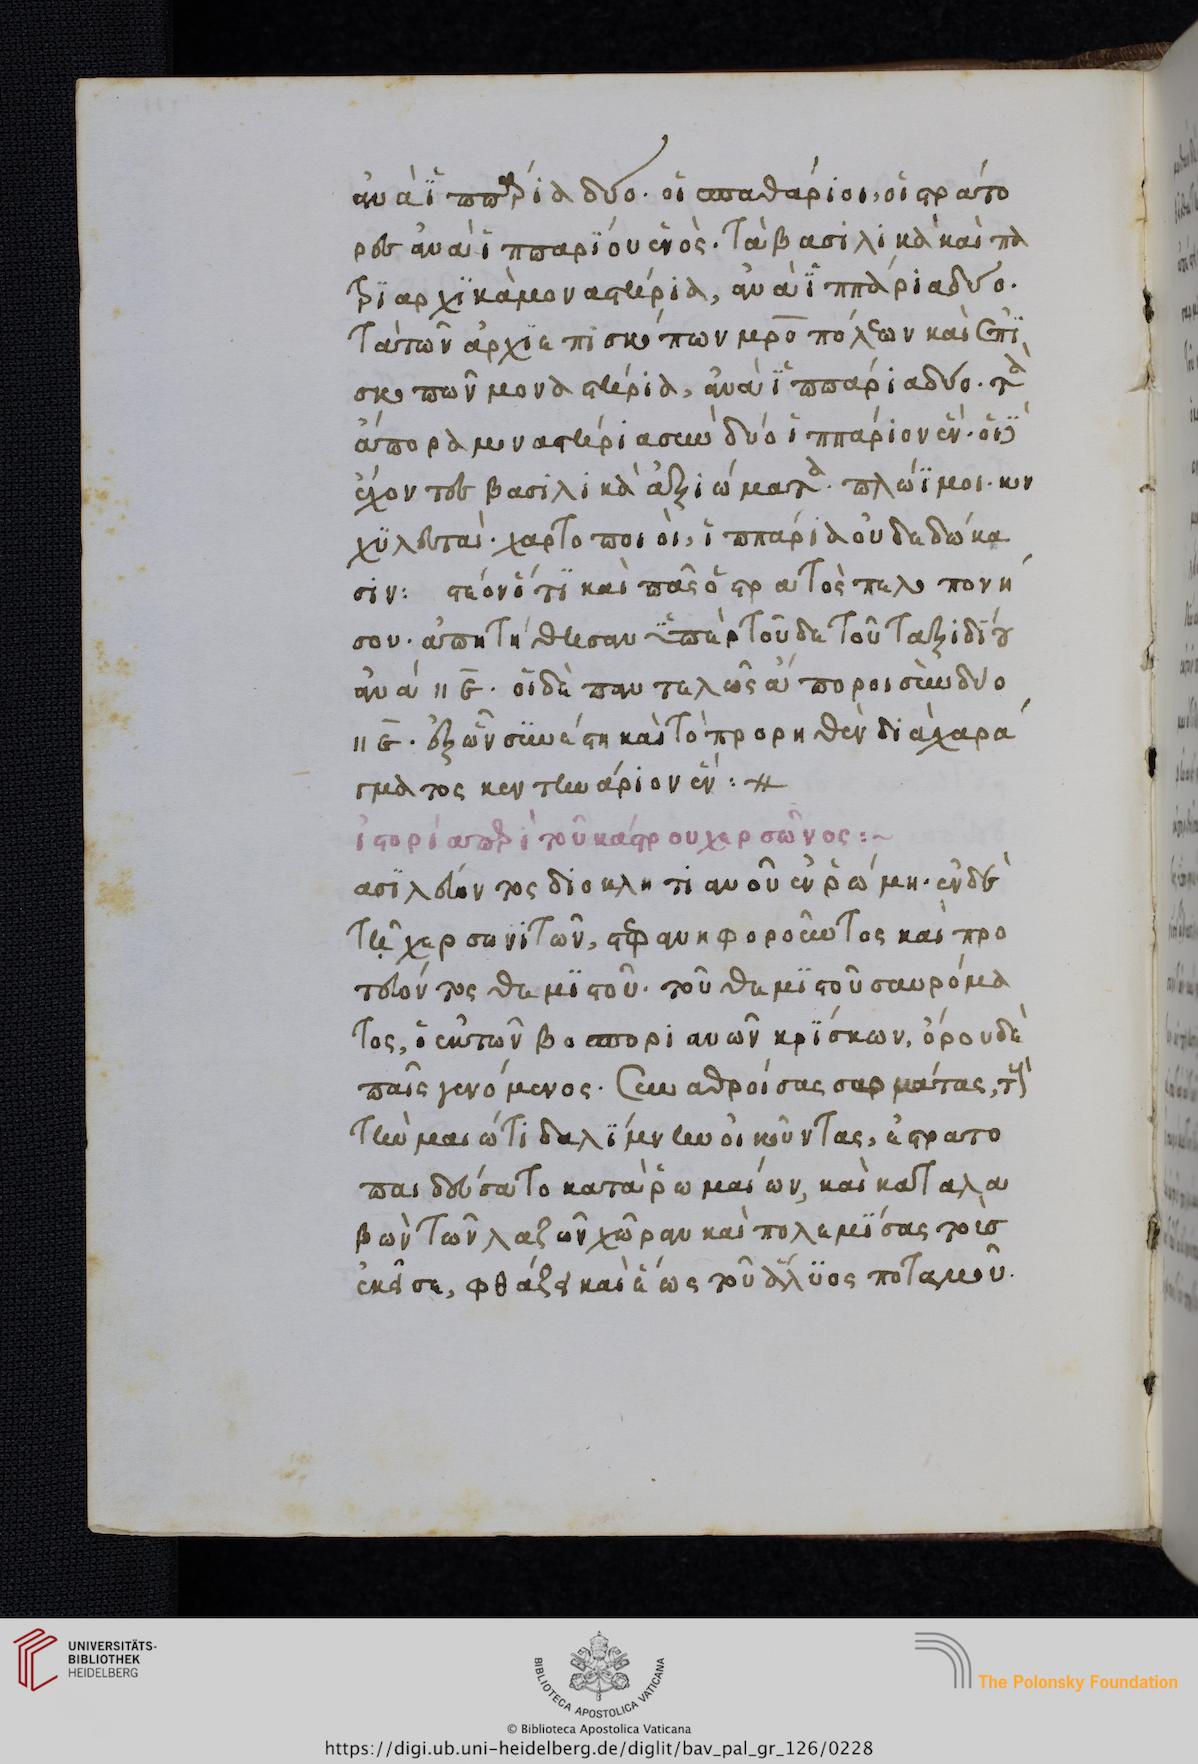 ἀνὰ ἱππάρια δύο. οἱ σπαθάριοι, οἱ στράτο
ρες ἀνὰ ἱππαρίου ἑνὸς. τὰ βασιλικὰ καὶ πα
τριαρχικὰ μοναστέρια, ἀνὰ ἱππάρια δύο.
τὰ τῶν ἀρχιεπισκόπων μρο πόλεων καὶ ἐπι
σκοπῶν μοναστέρια, ἀνὰ ἱππάρια δύο. τὰ
ἄπορα μοναστέρια σὺν δύο ἱππάριον ἕν. οἱ
ἔχοντες βασιλικὰ ἀξιώματα. πλώϊμοι. κον
χϋλευταὶ. χαρτοποιοὶ, ἱππάρια οὐ δεδώκα
σιν: στέον ὅτι καὶ πᾶς ὁ στρατὸς πελοπονή
σου. ἀπητήθεσαν ὑπὲρ τοῦδε τοῦ ταξιδίου
ἀνὰ οἱ δὲ παντελῶς ἄποροι σὺν δύο
ἐξ ὧν συνέστη καὶ τὸ προρηθὲν διὰ χαρά
γματος κεντηνάριον ἕν:
ἱστορία περὶ τοῦ κάστρου χερσῶνος:~
ασιλεύοντος διοκλητιανοῦ ἐν ῥώμη. ἐν δὲ
τῆ χερσωνιτῶν, στεφανηφοροῦντος καὶ προ
τεύοντος θεμιστοῦ. τοῦ θεμιστοῦ σαυρόμα
τος, ὁ ἐκ τῶν βοσποριανῶν κρΐσκων, ὀρου δὲ
παῖς γενόμενος. συναθροίσας σαρμάτας, τοὺς
τὴν μαιώτιδα λίμνην οἰκοῦντας, ἐστρατο
παιδεύσατο κατὰ ῥωμαίων, καὶ καταλα
βὼν τῶν λαζῶν χῶραν καὶ πολεμίσας τοὶσ
ἐκεῖσε, φθάζει καὶ ἕως τοῦ ἄλυος ποταμοῦ.
UNIVERSITÄTS-
BIBLIOTHEK
HEIDELBERG
BIBLIOTECA APOSTOLICA VATICANA
The Polonsky Foundation
© Biblioteca Apostolica Vaticana
https://digi.ub.uni-heidelberg.de/diglit/bav_pal_gr_126/0228